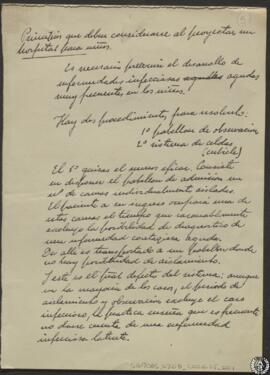 Principios que deben considerarse al proyectar un
hospital para niños.
Es necesario prevenir el desarrollo de
enfermedades infecciosas agudas
muy frecuentes en los niños.
Hay dos procedimientos para resolverlo:
1º pabellon de observacion
2º sistema de celdas
El 1º quizas el menos eficaz. Consiste
en disponer el pabellon de admision en
nº de camas individualmente aisladas.
El paciente a su ingreso ocupará una de
estas camas el tiempo que razonablemente
excluye la posibilidad de diagnostico de
una enfermedad contagiosa aguda.
De alli es transportado a un pabellon donde
no hay posibilidad de aislamiento.
Y este es el final defecto del sistema: aunque
en la mayoria de los casos, el periodo de
aislamiento y observacion excluye el caso
infeccioso, la practica enseña que es frecuente
no darse cuenta de una enfermedad
infecciosa latente.